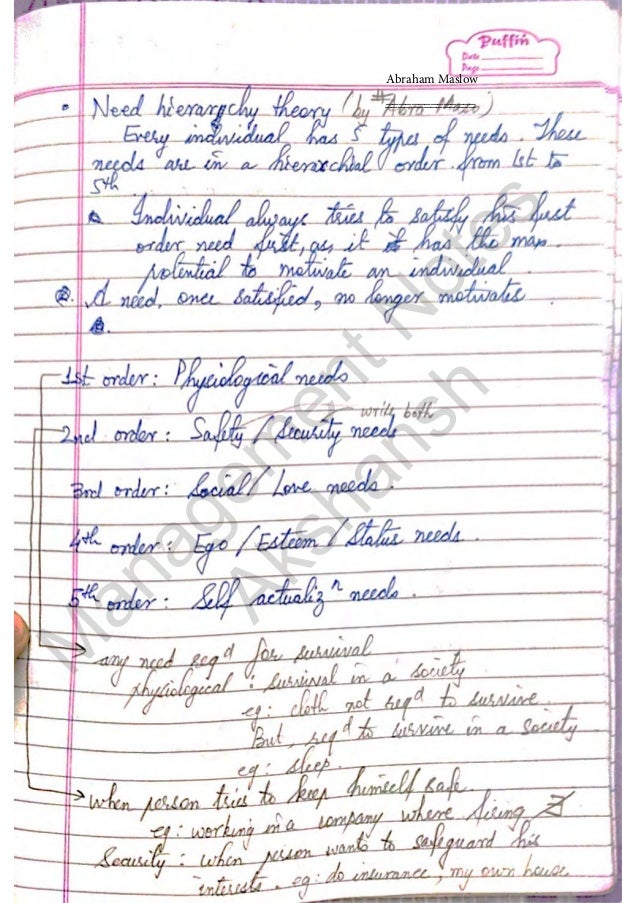 Puffin
Date
Page
Abraham Maslow
• Need hierarchy theory (by # Abra Maso)
Every individual has 5 types of needs. These
needs are in a hierarchial order from 1st to
5th
Individual always tries to satisfy his first
order need first, as it has the max.
potential to motivate an individual.
2. A need, once satisfied, no longer motivates
1st order: Physiological needs
write both
2nd order: Safety / Security needs
3rd order: Social / Love needs.
4th order: Ego / Esteem / Status needs.
5th order: Self actualizn needs.
any need reqd for survival
physiological: survival in a society
eg: cloth not reqd to survive.
But, reqd to survive in a society
eg: sleep.
when person tries to keep himself safe.
eg: working in a company where firing
Security: when person wants to safeguard his
interests. eg: do insurance, my own house
Management Notes
Akshansh